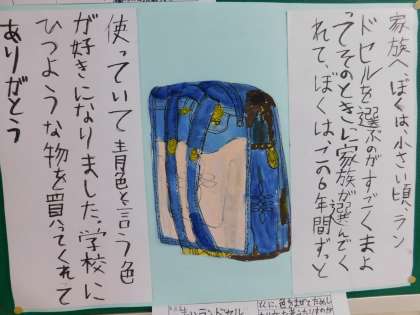 家族へ ぼくは、小さい頃、ラン
ドセルを選ぶのがすごくまよ
ってそのときに家族が選んでく
れて、ぼくは、この6年間ずっと
使っていて青色と言う色
が好きになりました。学校に
ひつような物を買ってくれて
ありがとう